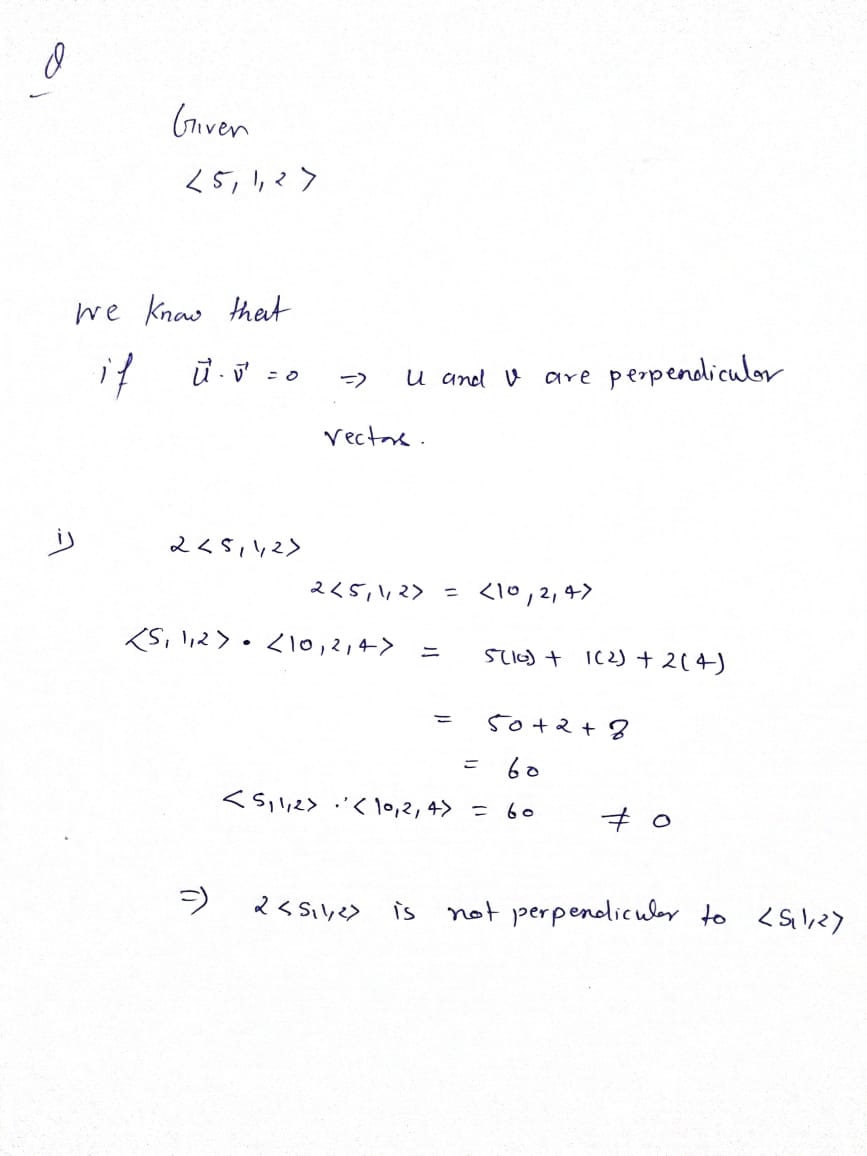 Q
Given
<5, 1, 2>
we know that
if u⃗ . v⃗ = 0 => u and v are perpendicular
vectors.
i) 2<5, 1, 2>
2<5, 1, 2> = <10, 2, 4>
<5, 1, 2> • <10, 2, 4> = 5(10) + 1(2) + 2(4)
= 50 + 2 + 8
= 60
<5, 1, 2> . <10, 2, 4> = 60 ≠ 0
=> 2<5, 1, 2> is not perpendicular to <5, 1, 2>